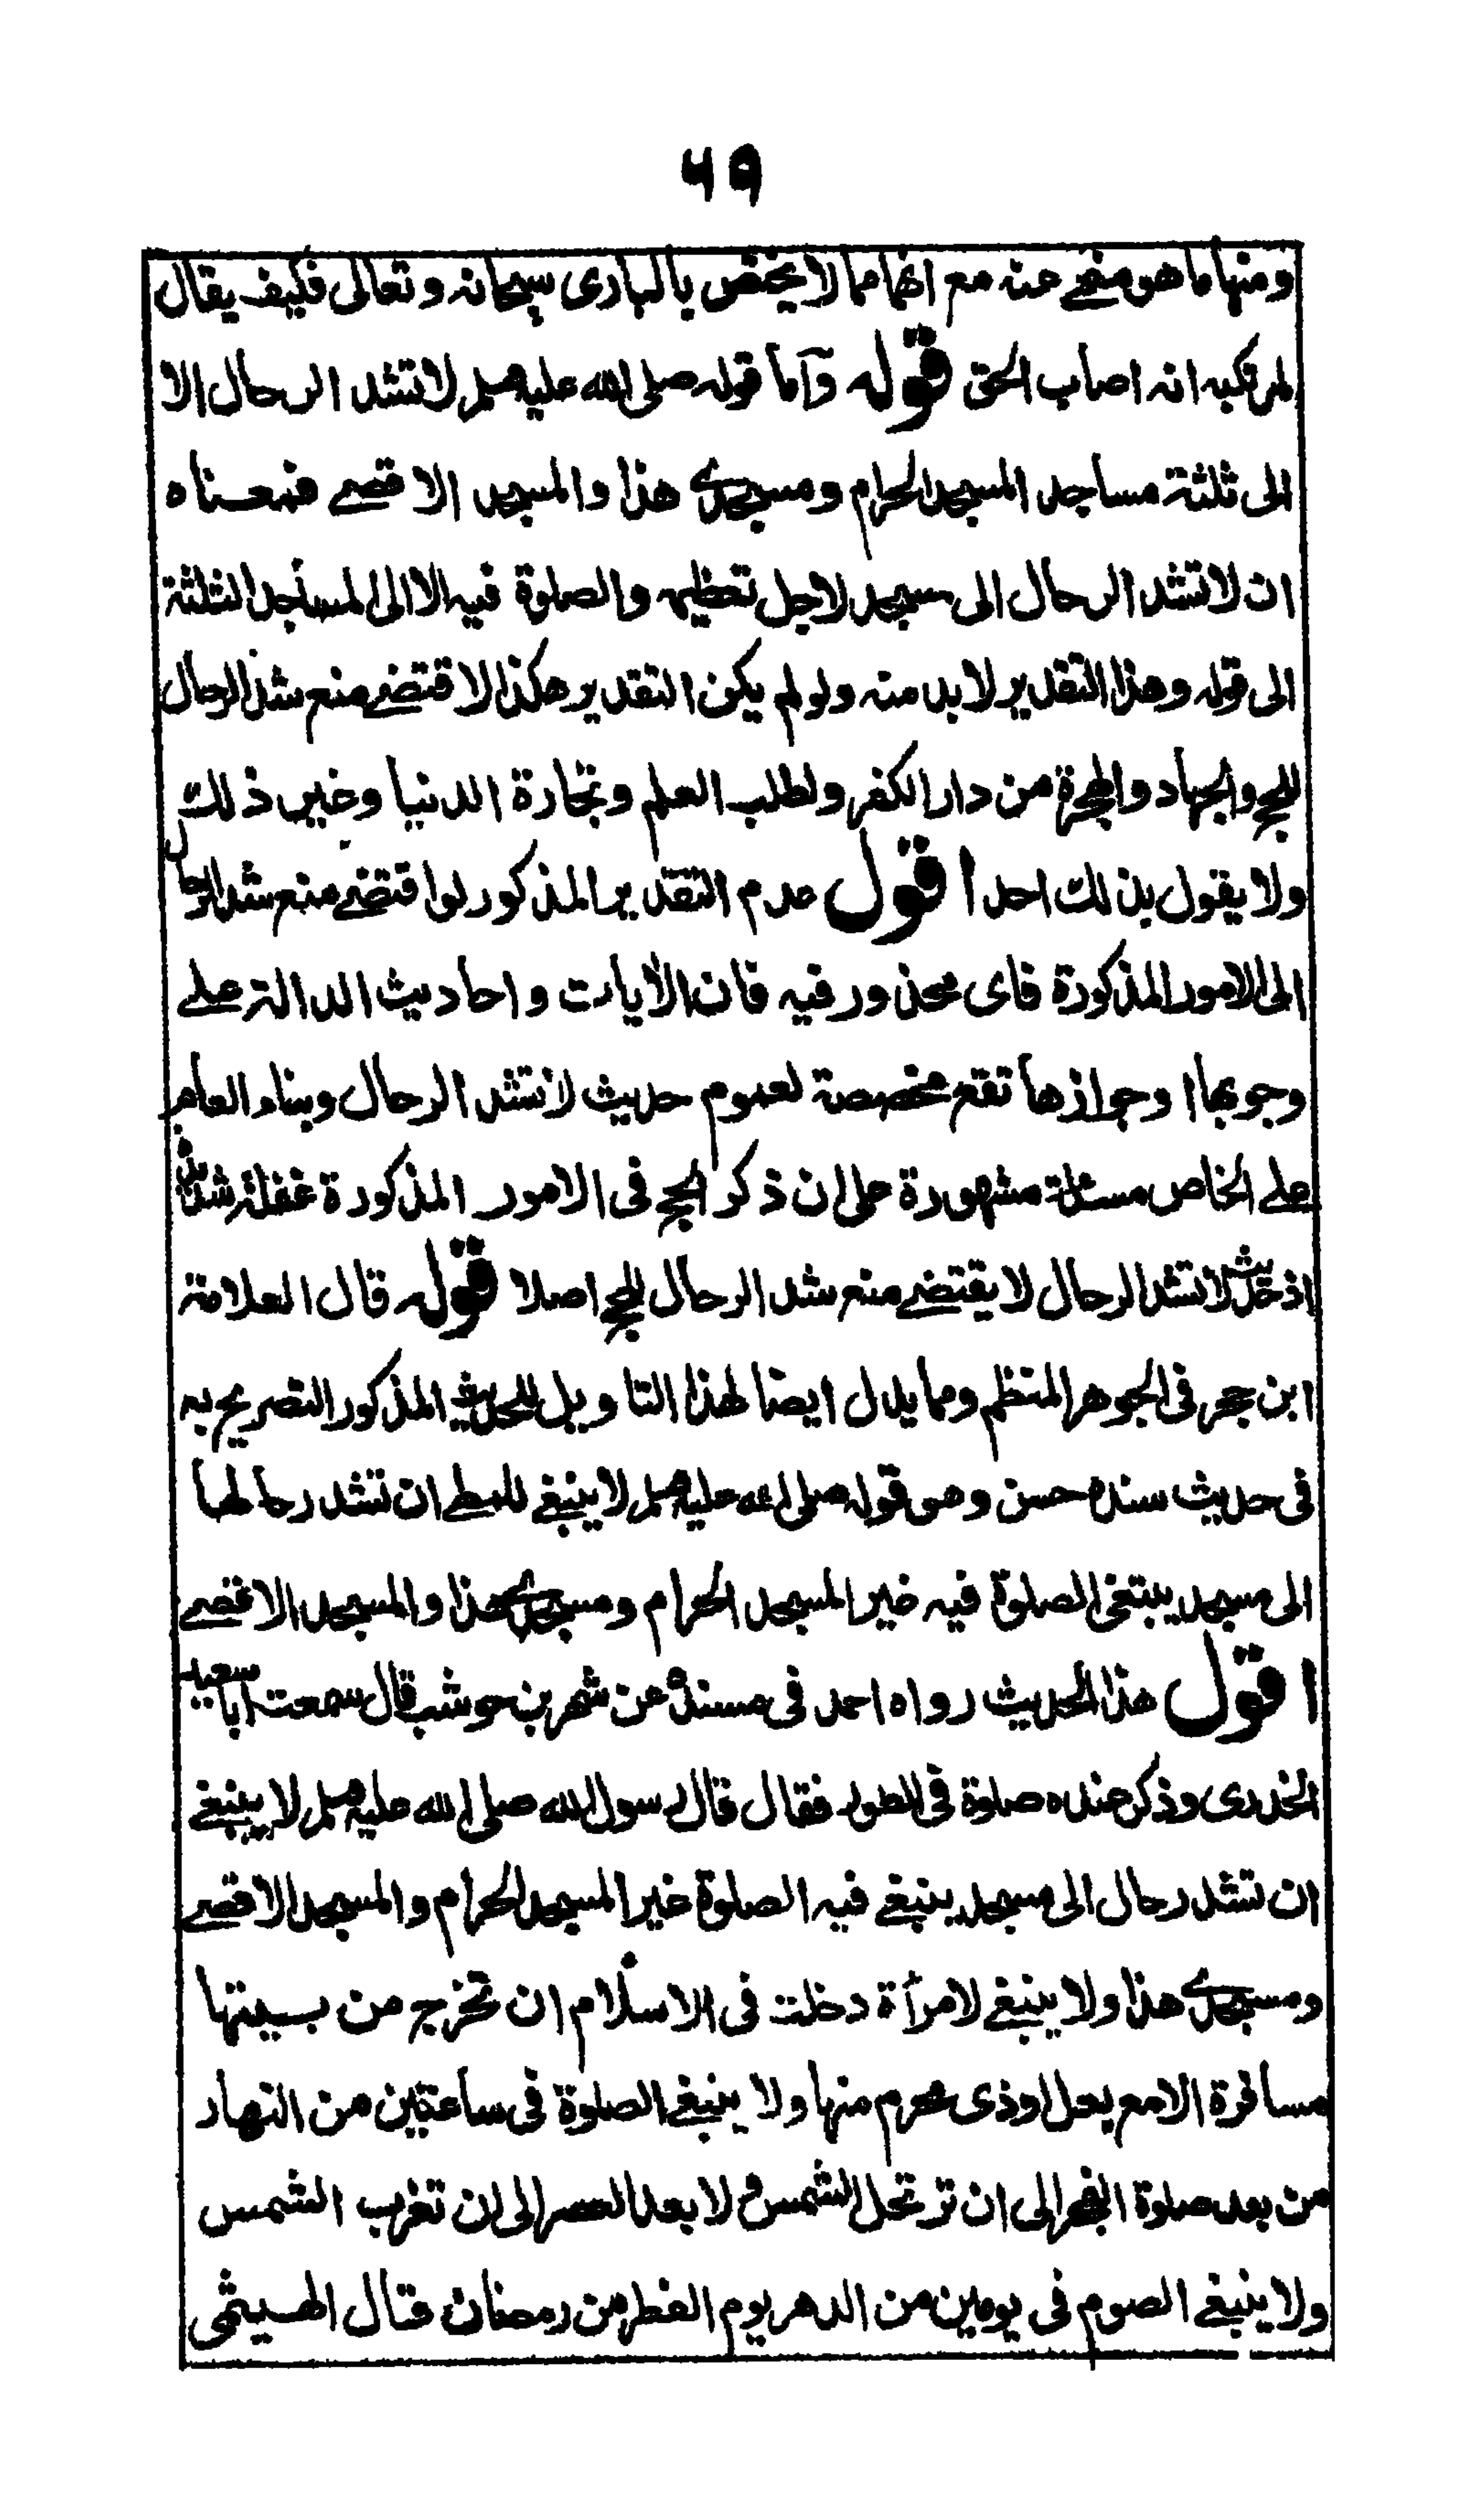 ٤٩
ومنها ما هو منهي عنه مع انها مما لا يختص بالبارى سبحانه وتعالى فكيف يقال
لمرتكبه انه اصاب الحق قوله وآما قوله صلى الله عليه وسلم لا تشد الرحال الا
الى ثلثة مساجد المسجد الحرام ومسجدى هذا والمسجد الاقصى فمعناه
ان لا تشد الرحال الى مسجد لاجل تعظيمه والصلوة فيه الا الى المساجد الثلثة
الى قوله وهذا التقدير لا بد منه ولو لم يكن التقدير هكذا لاقتضى منع شد الرحال
للحج والجهاد والهجرة من دار الكفر ولطلب العلم وتجارة الدنيا وغير ذلك
ولا يقول بذلك احد اقول عدم التقدير المذكور لو اقتضى منع شد الرحال
الى الامور المذكورة فاى محذور فيه فان الأيات واحاديث الدالة على
وجوبها او جوازها تقع مخصصة لعموم حديث لا تشد الرحال وبناء العام
على الخاص مسئلة مشهورة على ان ذكر الحج فى الامور المذكورة غفلة شديدة
اذ حديث لا تشد الرحال لا يقتضى منع شد الرحال للحج اصلا قوله قال العلامة
ابن حجر فى الجوهر المنتظم ومما يدل ايضا لهذا التاويل للحديث المذكور التصريح به
فى حديث سنده حسن وهو قوله صلى الله عليه وسلم لا ينبغى للمطى ان تشد رحالها
الى مسجد يبتغى الصلوة فيه غير المسجد الحرام ومسجدى هذا والمسجد الاقصى
اقول هذا الحديث رواه احمد فى مسنده عن شهر بن حوشب قال سمعت ابا سعيد
الخدرى وذكر عنده صلوة فى الطور فقال قال رسول الله صلى الله عليه وسلم لا ينبغى
ان تشد رحال الى مسجد ينبغى فيه الصلوة غير المسجد الحرام والمسجد الاقصى
ومسجدى هذا ولا ينبغى لامرأة دخلت فى الاسلام ان تخرج من بيتها
مسافرة الا مع بعل او ذى محرم منها ولا ينبغى الصلوة فى ساعتين من النهار
من بعد صلوة الفجر الى ان ترتحل الشمس ولا بعد العصر الى ان تغرب الشمس
ولا ينبغى الصوم فى يومين من الدهر يوم الفطر من رمضان قال الهيثمى